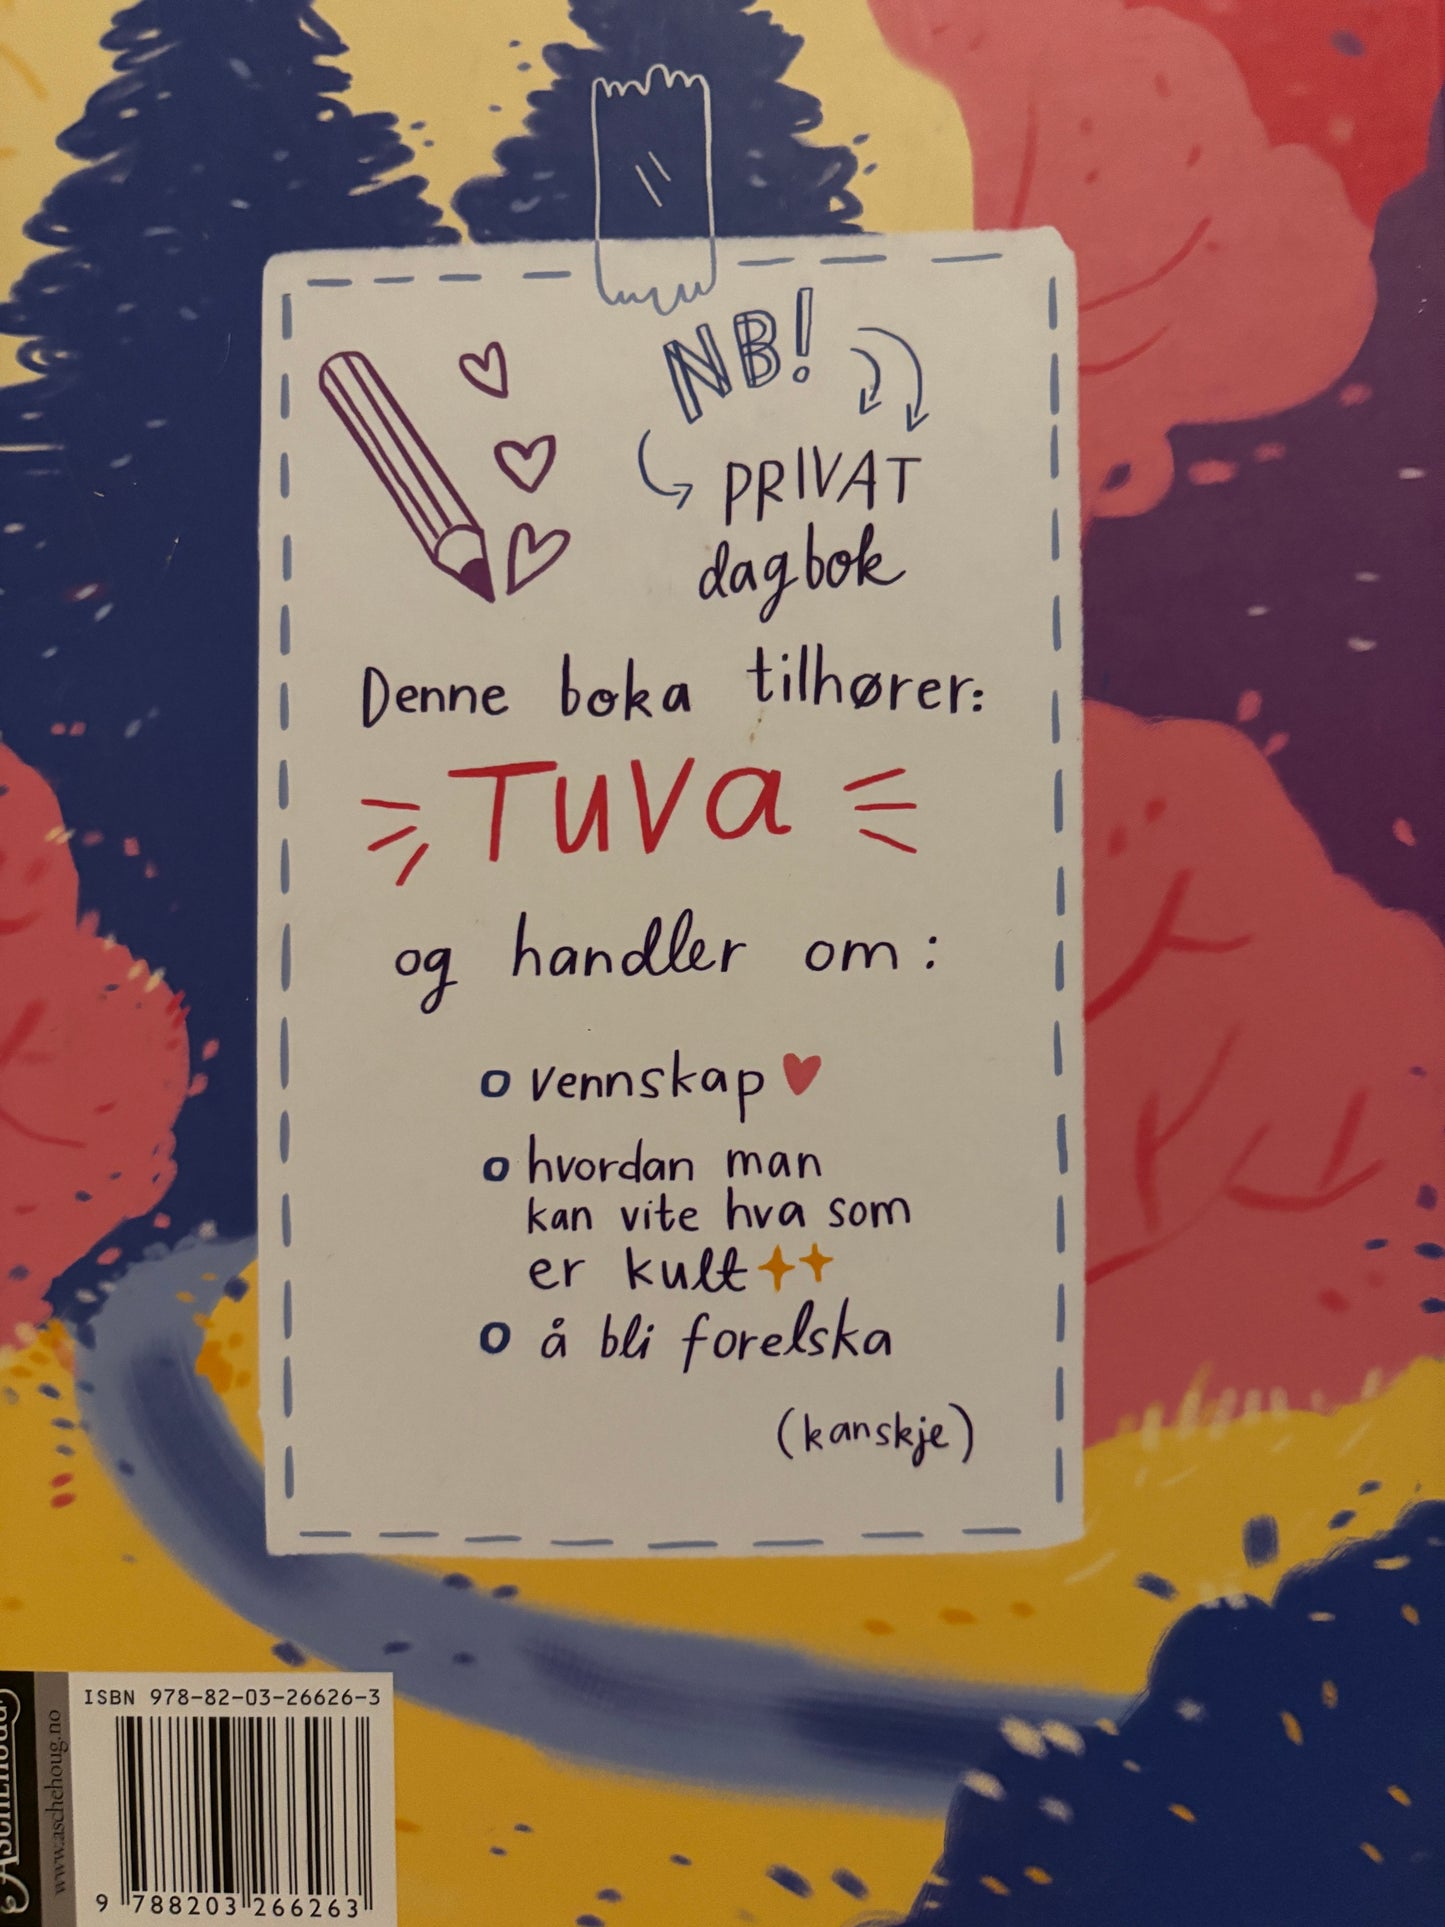 NB!
PRIVAT
dagbok
Denne boka tilhører:
TUVA
og handler om:
o vennskap
o hvordan man
kan vite hva som
er kult
o å bli forelska
(kanskje)
ISBN 978-82-03-26626-3
9 788203 266263
Aschehoug
www.aschehoug.no